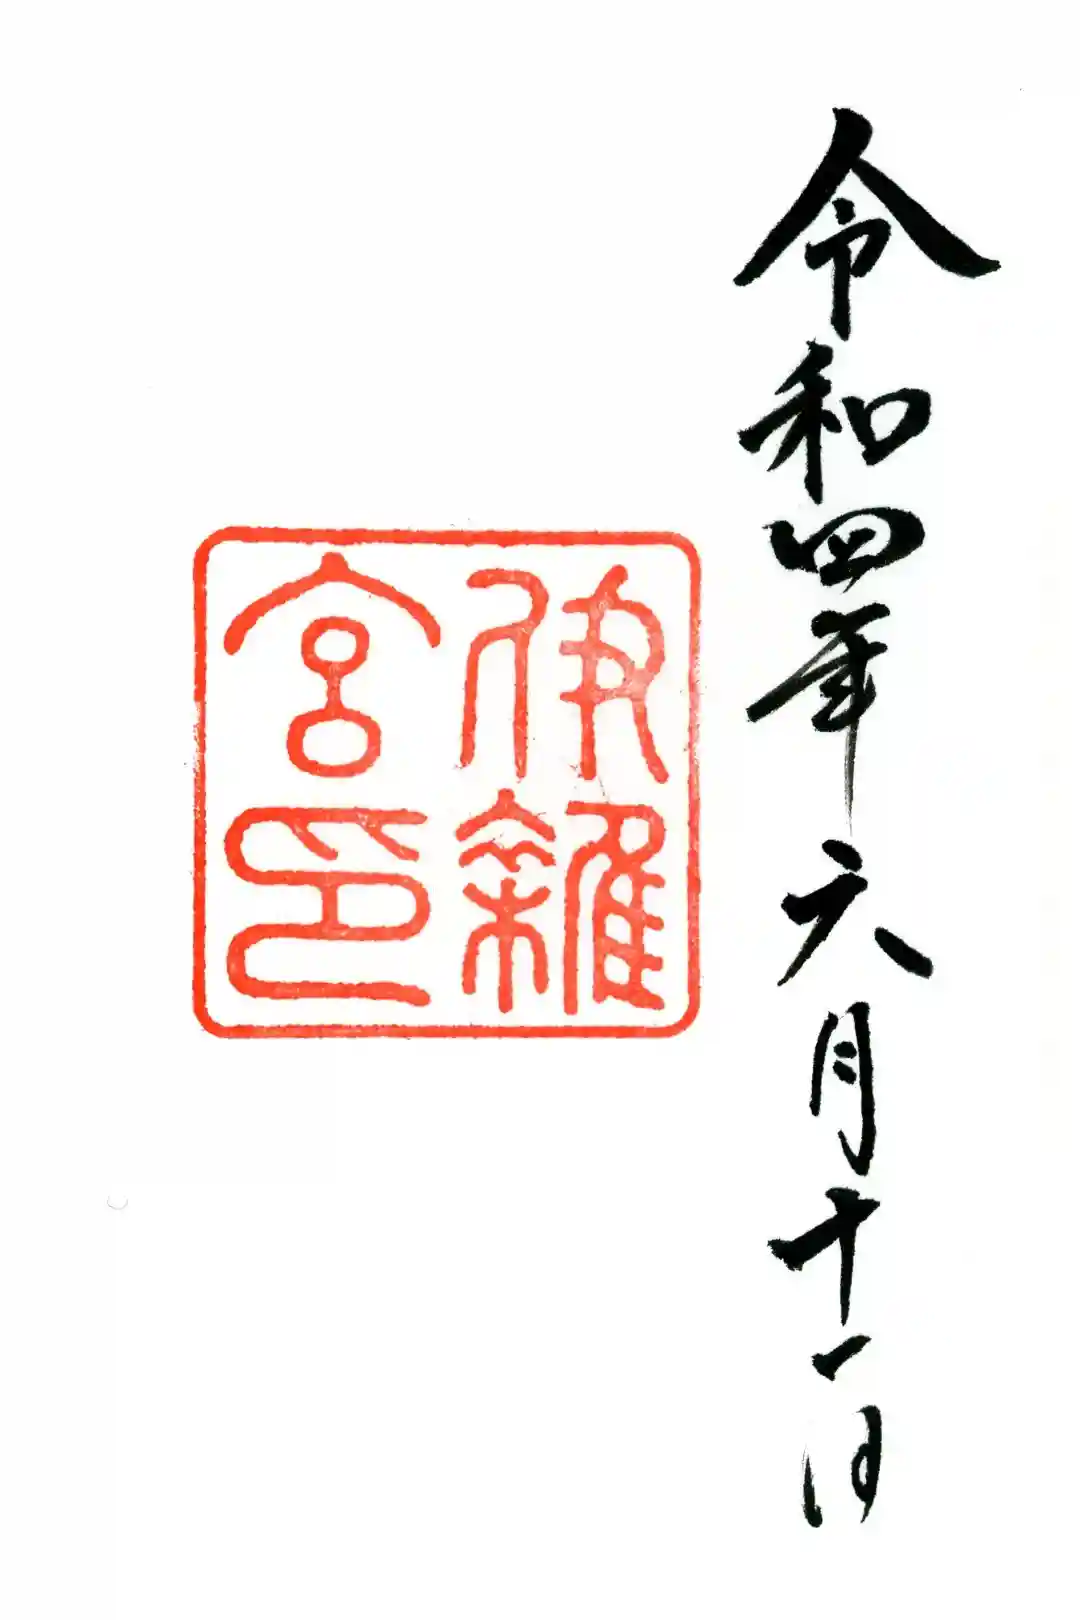 令和四年六月十一日
伊雜
宮印